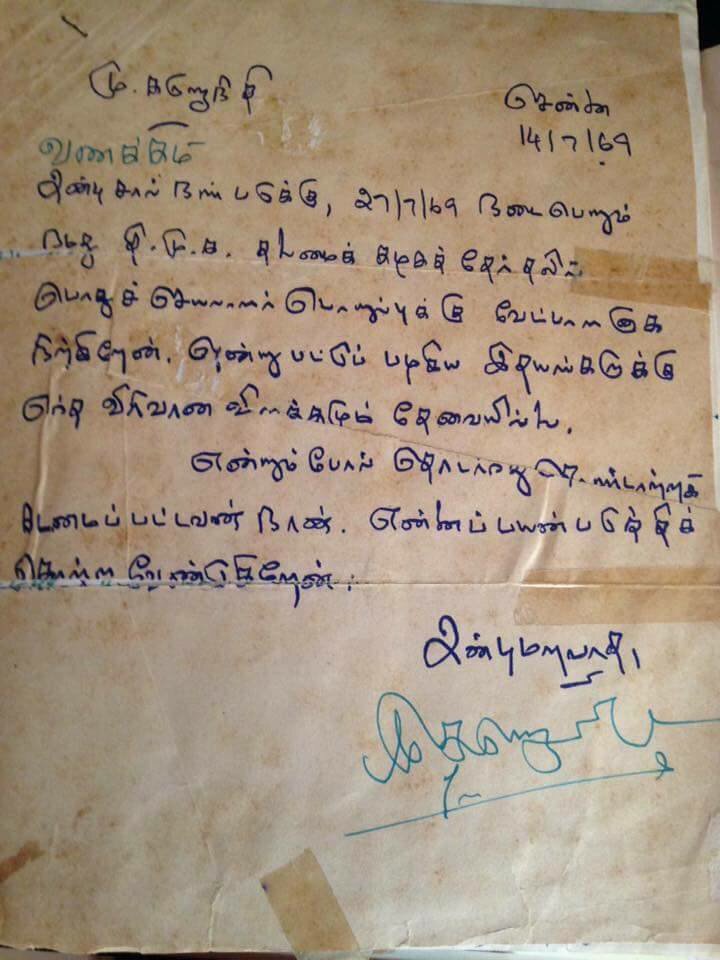 மு. கருணாநிதி
சென்னை
14/7/69
வணக்கம்
அன்பு சால் நண்பருக்கு, 27/7/69 நடைபெறும்
நமது தி.மு.க. தலைமைக் கழகத் தேர்தலில்
பொதுச் செயலாளர் பொறுப்புக்கு வேட்பாளனாக
நிற்கிறேன். ஒன்றுபட்டுப் பழகிய இதயங்களுக்கு
எந்த விரிவான விளக்கமும் தேவையில்லை.
என்றும் போல் தொடர்ந்து தொண்டாற்றக்
கடமைப்பட்டவன் நான். என்னைப் பயன்படுத்திக்
கொள்ள வேண்டுகிறேன்.
அன்புமறவாத,
மு. கருணாநிதி